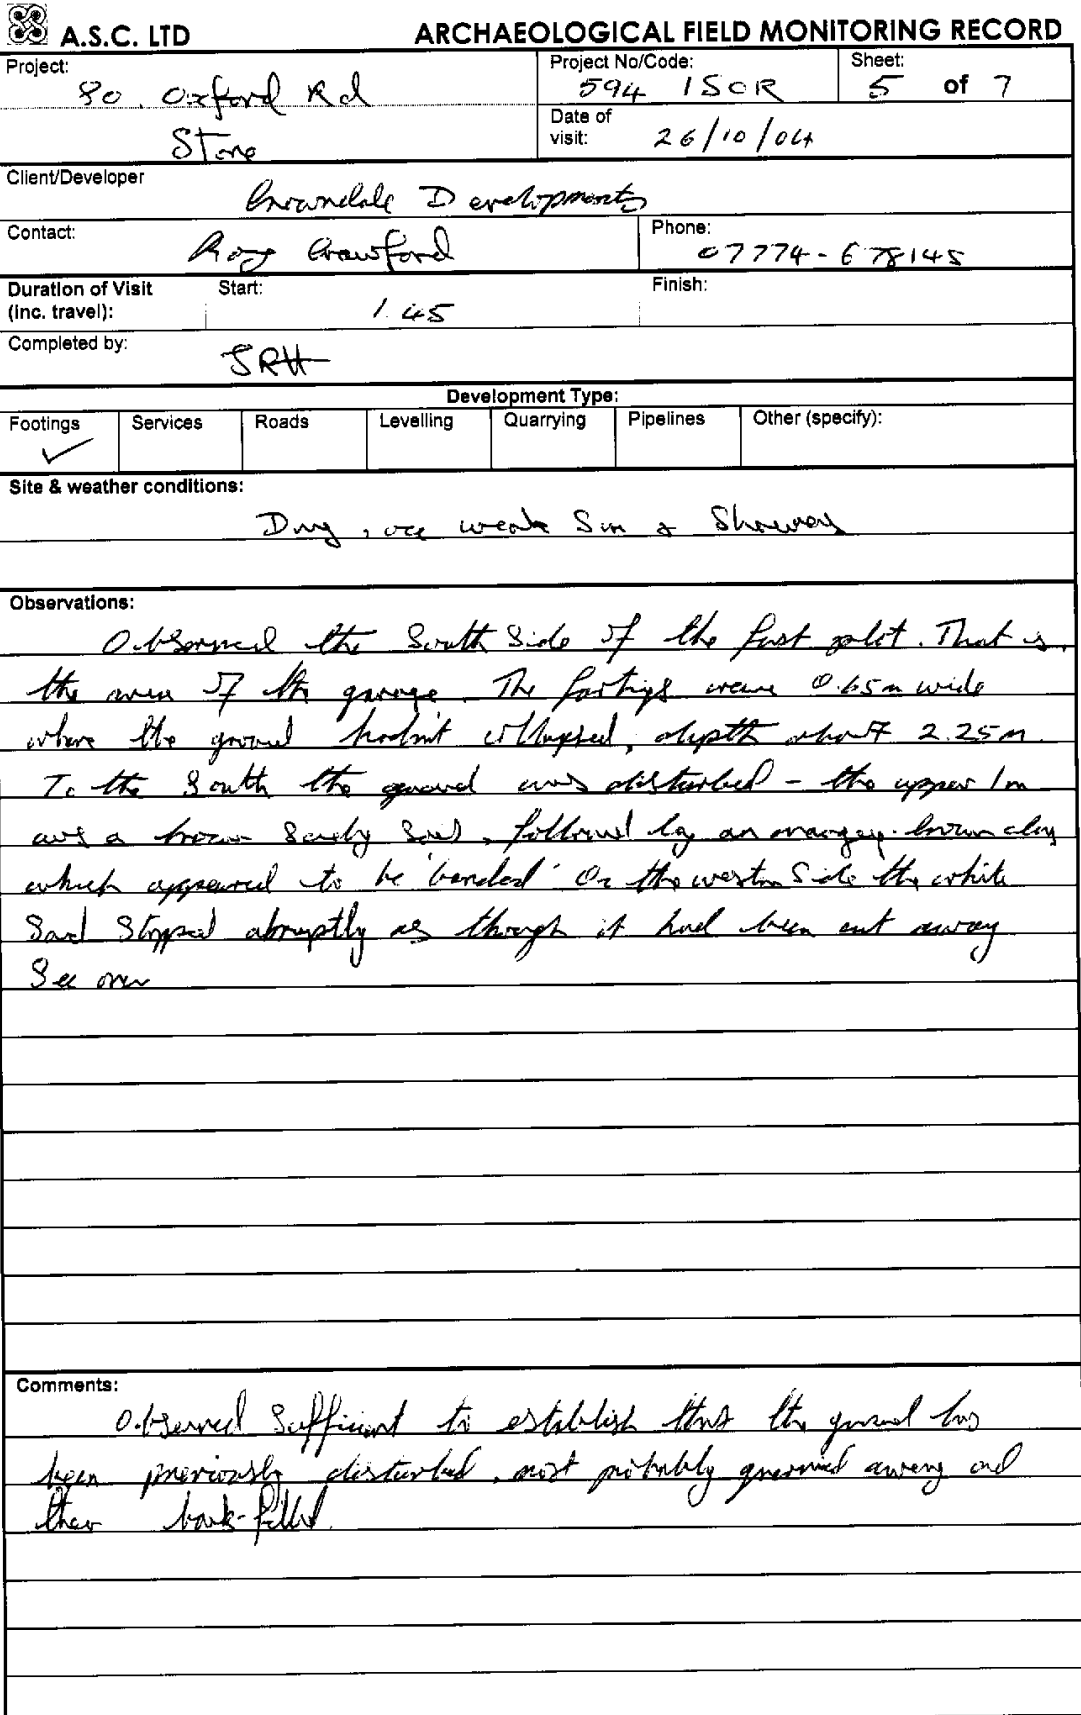 A.S.C. LTD
ARCHAEOLOGICAL FIELD MONITORING RECORD
Project:
80, Oxford Rd
Stone
Project No/Code:
594 ISOR
Sheet:
5 of 7
Date of visit:
26/10/04
Client/Developer
Developments
Contact:
Roy Crawford
Phone:
07774-678145
Duration of Visit (inc. travel):
Start:
1.45
Finish:
Completed by:
JRH
Development Type:
Footings ✓
Services
Roads
Levelling
Quarrying
Pipelines
Other (specify):
Site & weather conditions:
Dry, occ weak Sun & Showers
Observations:
Observed the South Side of the first plot. That is,
the area of the garage. The footings were 0.65m wide
where the ground hadn't collapsed, depth about 2.25m.
To the South the ground was disturbed - the upper 1m
was a brown Sandy Soil, followed by an orangey-brown clay
which appeared to be 'banded' On the western Side the white
Sand Stopped abruptly as though it had been cut away
See over
Comments:
Observed Sufficient to establish that the ground has
been previously disturbed, most probably quarried away and
then back-filled.